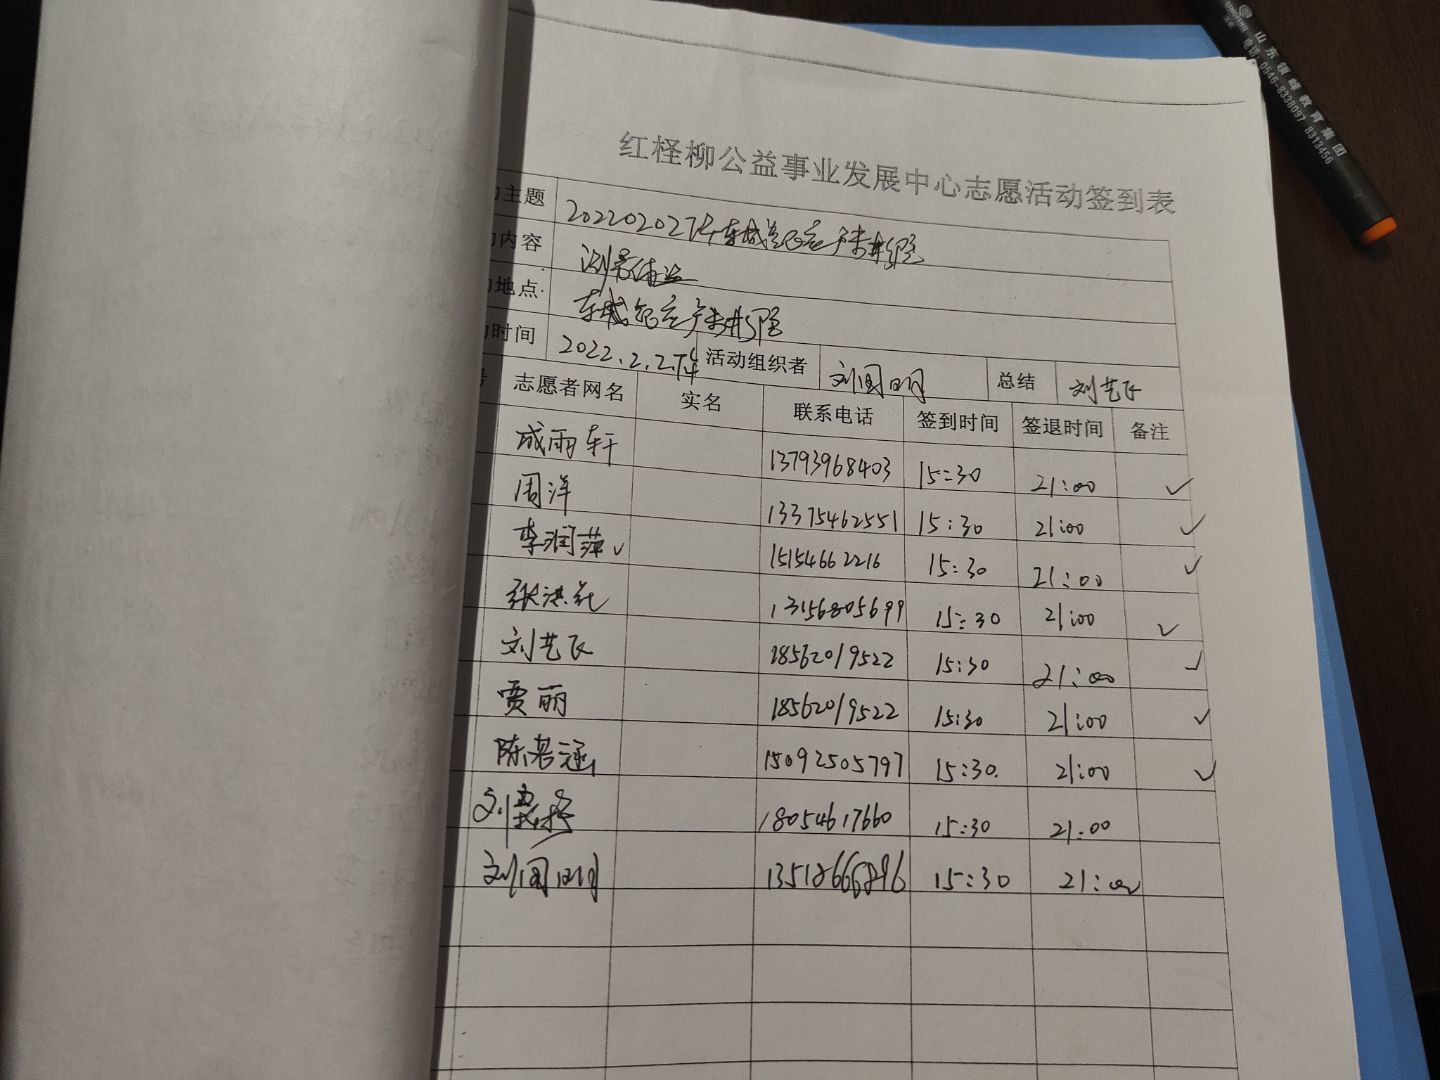 山东领峰教育集团
电话:0546-8338097 8313456
红柽柳公益事业发展中心志愿活动签到表
主题 20220202下午东城
内容 测量体温
地点 东城
时间 2022.2.2下午 活动组织者 刘国明 总结 刘艺飞
志愿者网名 实名 联系电话 签到时间 签退时间 备注
成雨轩 13793968403 15:30 21:00 ✓
周洋 13375462551 15:30 21:00 ✓
李润萍✓ 15154662216 15:30 21:00 ✓
张洪花 13156805699 15:30 21:00 ✓
刘艺飞 18562019522 15:30 21:00 ✓
贾丽 18562019522 15:30 21:00 ✓
陈若涵 15092505797 15:30 21:00 ✓
刘 18054617660 15:30 21:00
刘国明 13518666896 15:30 21:00